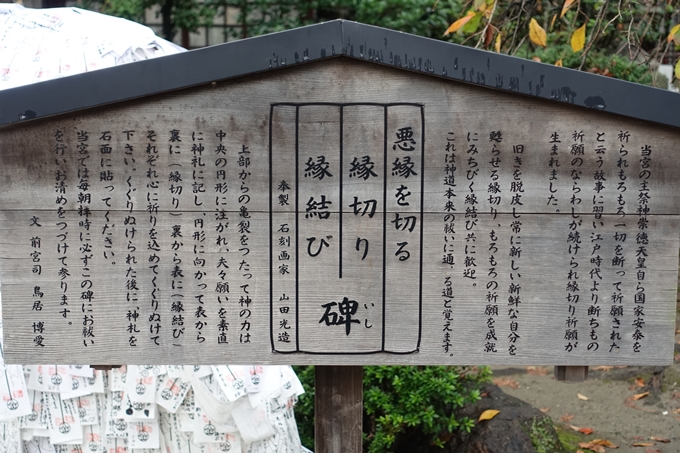 当宮の主祭神崇徳天皇自ら国家安泰を
祈られもろもろ一切を断って祈願された
と云う故事に習い江戸時代より断ちもの
祈願のならわしが続けられ縁切り祈願が
生まれました。
旧きを脱皮し常に新しい新鮮な自分を
甦らせる縁切り、もろもろの祈願を成就
にみちびく縁結び共に歓迎。
これは神道本来の祓いに通ずる道と覚えます。
悪縁を切る
縁切り
縁結び
碑
いし
奉製 石刻画家 山田光造
上部からの亀裂をつたって神の力は
中央の円形に注がれ、夫々願いを素直
に神札に記し、円形に向かって表から
裏に(縁切り)裏から表に(縁結び)
それぞれ心に祈りを込めてくぐりぬけて
下さい。くぐりぬけられた後に、神札を
石面に貼ってください。
当宮では毎朝拝時に必ずこの碑にお祓い
を行い、お清めをつづけて参ります。
文 前宮司 鳥居 博愛